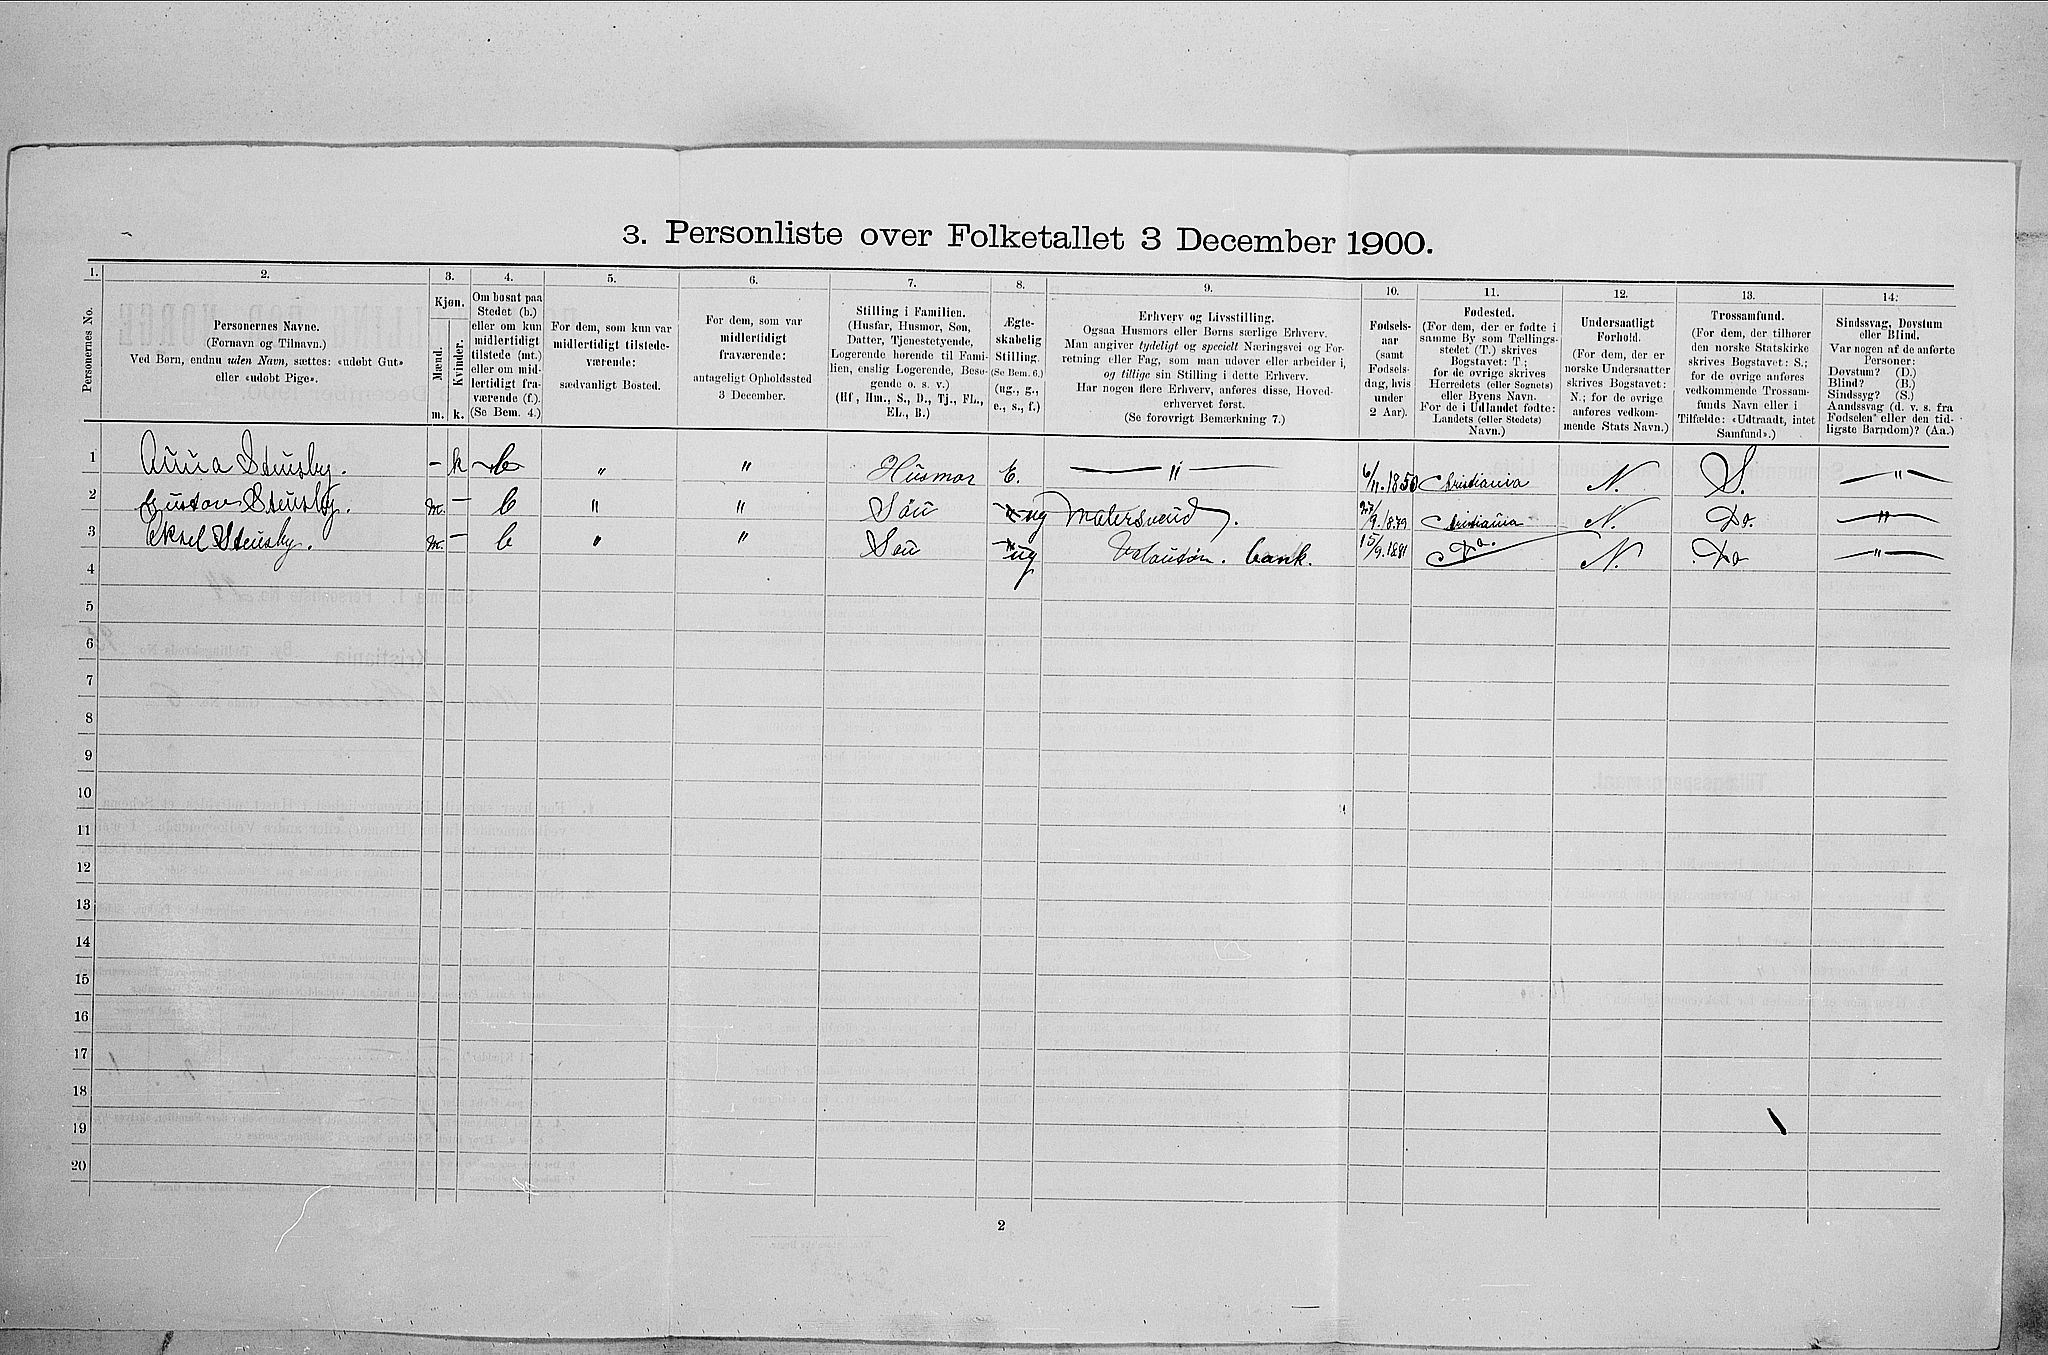 3. Personliste over Folketallet 3 December 1900.
1. 2. 3. 4. 5. 6. 7. 8. 9. 10. 11. 12. 13. 14.
Personernes No.
Personernes Navne.
(Fornavn og Tilnavn.)
Ved Børn, endnu uden Navn, sættes: «udøbt Gut»
eller «udøbt Pige».
Kjøn.
Mænd.
Kvinder.
m. k.
Om bosat paa
Stedet (b.)
eller om kun
midlertidigt
tilstede (mt.)
eller om mid-
lertidigt fra-
værende (f.).
(Se Bem. 4.)
For dem, som kun var
midlertidigt tilstede-
værende:
sædvanligt Bosted.
For dem, som var
midlertidigt
fraværende:
antageligt Opholdssted
3 December.
Stilling i Familien.
(Husfar, Husmor, Søn,
Datter, Tjenestetyende,
Logerende hørende til Fami-
lien, enslig Logerende, Besø-
gende o. s. v.)
(Hf, Hm., S., D., Tj., FL.,
EL., B.)
Ægte-
skabelig
Stilling.
(Se Bem. 6.)
(ug., g.,
e., s., f.)
Erhverv og Livsstilling.
Ogsaa Husmors eller Børns særlige Erhverv.
Man angiver tydeligt og specielt Næringsvei og For-
retning eller Fag, som man udover eller arbeider i,
og tillige sin Stilling i dette Erhverv.
Har nogen flere Erhverv, anføres disse, Hoved-
erhvervet først.
(Se forøvrigt Bemærkning 7.)
Fødsels-
aar
(samt
Fødsels-
dag, hvis
under
2 Aar).
Fødested.
(For dem, der er fødte i
samme By som Tællings-
stedet (T.) skrives
Bogstavet: T;
for de øvrige skrives
Herredets (eller Sognets)
eller Byens Navn.
For de i Udlandet fødte:
Landets (eller Stedets)
Navn.)
Undersaatligt
Forhold.
(For dem, der er
norske Undersaatter
skrives Bogstavet:
N.; for de øvrige
anføres vedkom-
mende Stats Navn.)
Trossamfund.
(For dem, der tilhører
den norske Statskirke
skrives Bogstavet: S.;
for de øvrige anføres
vedkommende Trossam-
funds Navn eller i
Tilfælde: «Udtraadt, intet
Samfund».)
Sindssvag, Døvstum
eller Blind.
Var nogen af de anførte
Personer:
Døvstum? (D.)
Blind? (B.)
Sindssyg? (S.)
Aandssvag (d. v. s. fra
Fødselen eller den tid-
ligste Barndom)? (Aa.)
1 Anna Stensby. – k b " " Husmor E. — " — 6/11.1850 Christiania N. S. — " —
2 Gustav Stensby. m. – b " " Søn ug Malersvend. 27/9.1879 Christiania N. Do. — " —
3 Eksel Stensby. m. – b " " Søn ug bank. 15/9.1881 Do. N. Do — " —
4
5
6
7
8
9
10
11
12
13
14
15
16
17
18
19
20
2